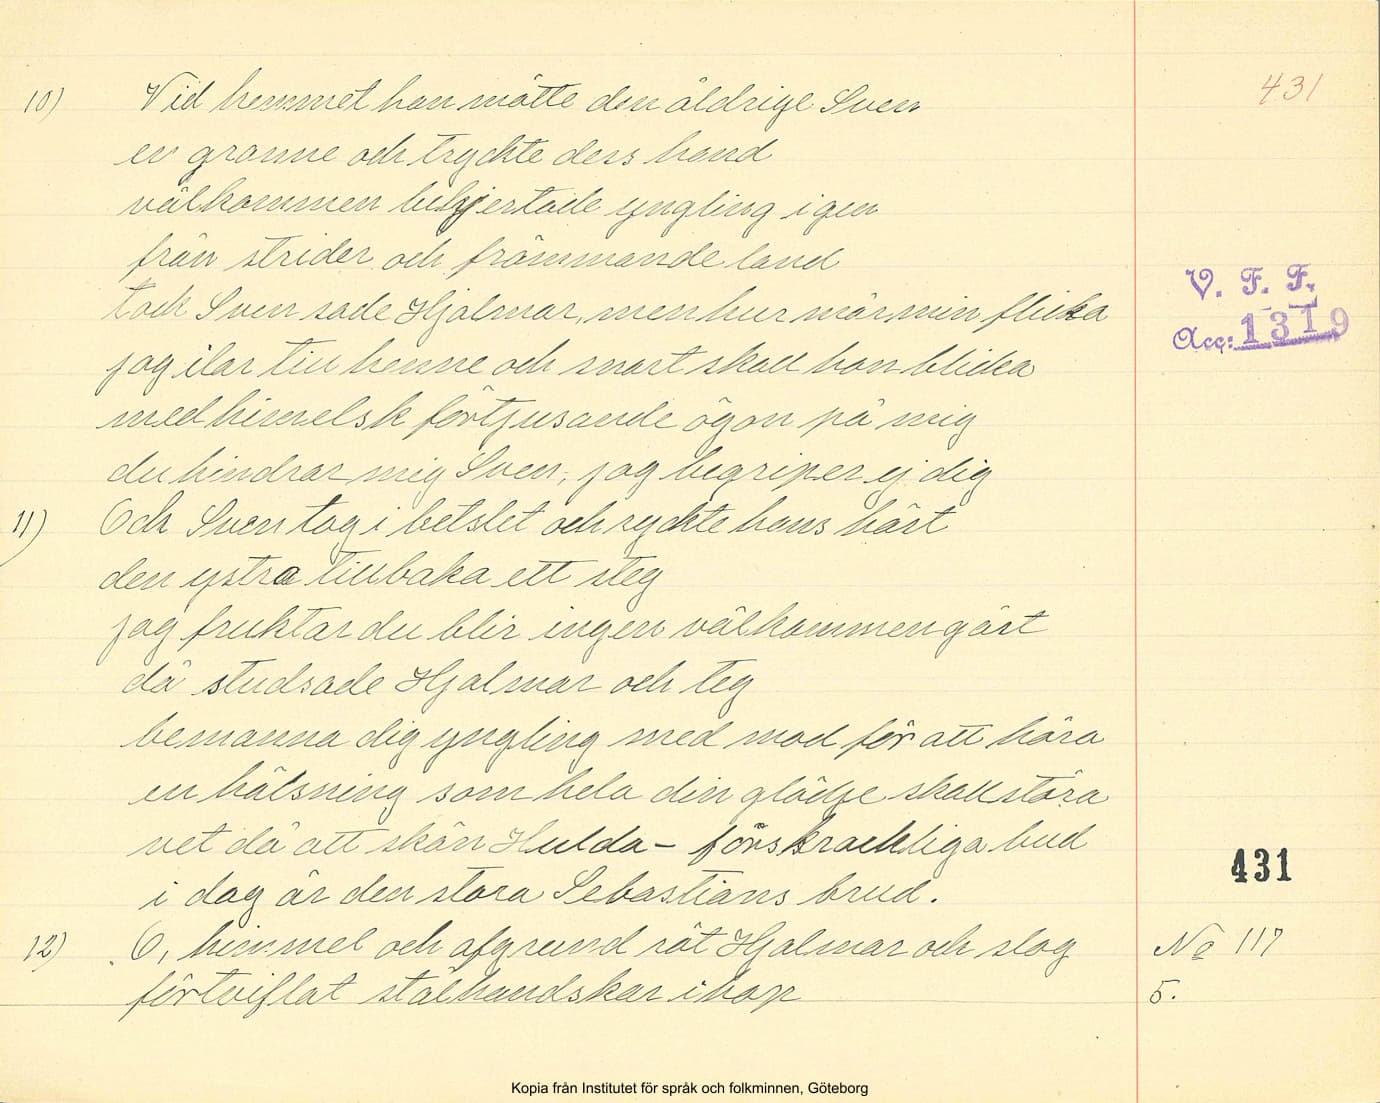 431
10) Vid hemmet han mötte den åldrige Sven
en granne och tryckte dess hand
välkommen behjertade yngling igen
från strider och främmande land
tack Sven sade Hjalmar, men hur mår min flicka
jag ilar till henne och snart skall hon blicka
med himelsk förtjusande ögon på mig
du hindrar mig Sven, jag begriper ej dig
11) Och Sven tog i betslet och ryckte hans häst
den ystra tillbaka ett steg
jag fruktar du blir ingen välkommen gäst
då studsade Hjalmar och teg
bemanna dig yngling med mod för att höra
en hälsning som hela din glädje skall störa
vet då att skön Hulda – förskräckliga bud
i dag är den stora Sebastians brud.
12) O, himmel och afgrund röt Hjalmar och slog
förtviflat stålhandskar ihop
V. F. F.
Acc: 1319
431
No 117
5.
Kopia från Institutet för språk och folkminnen, Göteborg